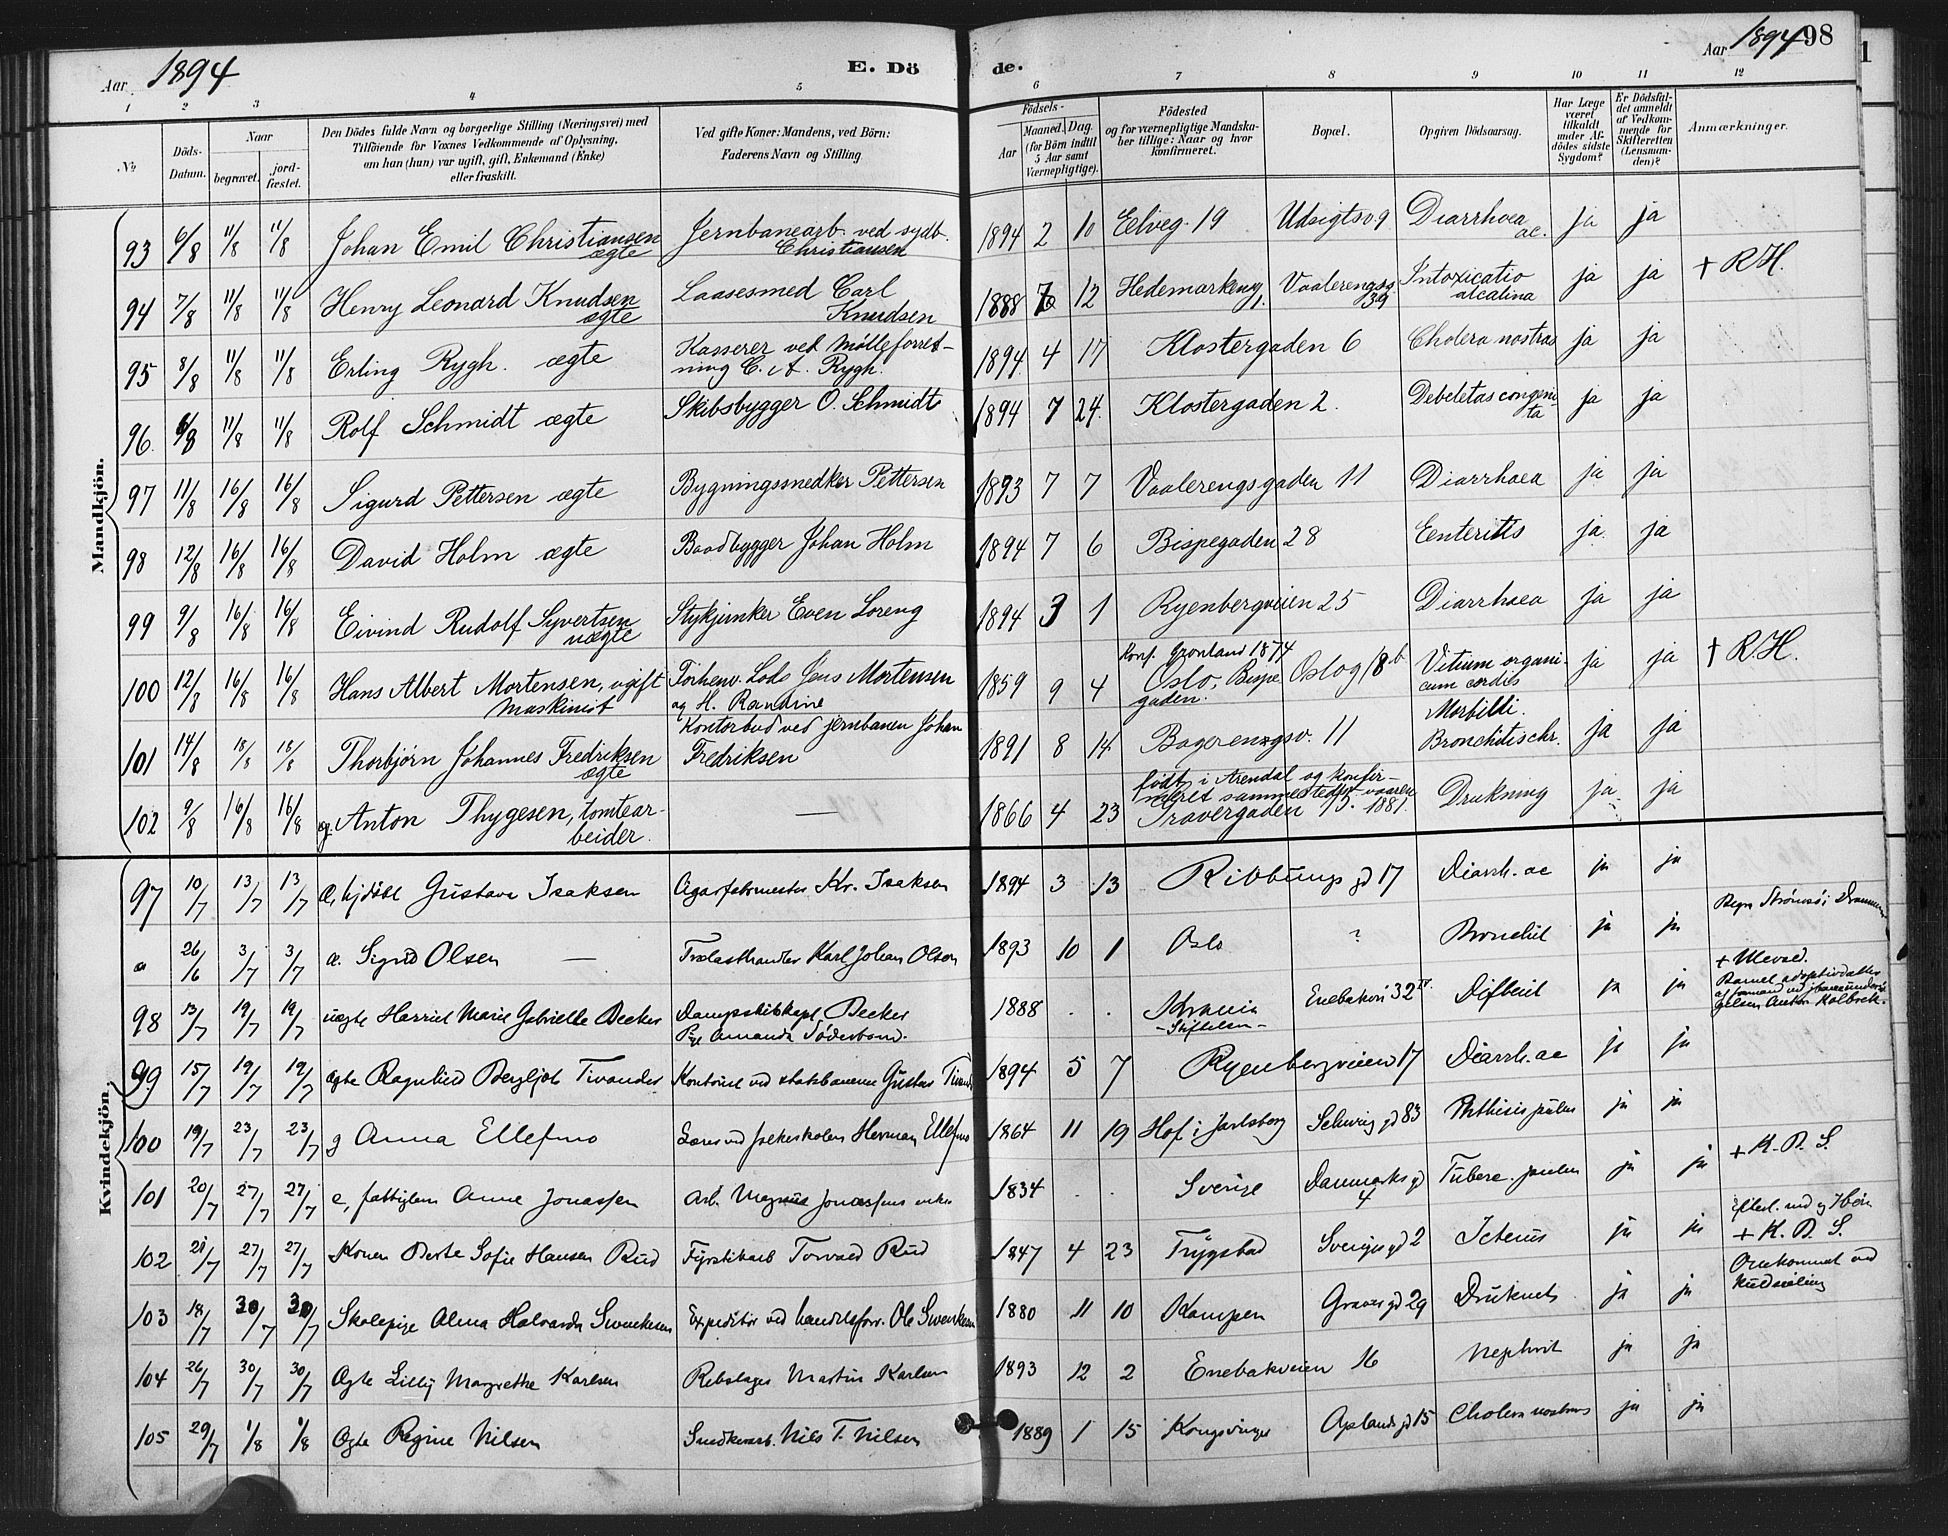 Aar 1894 E. Dö de. Aar 1894 98
1 2 3 4 5 6 7 8 9 10 11 12
No
Döds-Datum.
Naar
begravet.
jordfæstet.
Den Dödes fulde Navn og borgerlige Stilling (Næringsvei) med
Tilföiende for Voxnes Vedkommende af Oplysning,
om han (hun) var ugift, gift, Enkemand (Enke)
eller fraskilt.
Ved gifte Koner: Mandens, ved Börn:
Faderens Navn og Stilling.
Födsels-
Aar
Maaned. Dag.
(for Börn indtil
5 Aar samt
Værnepligtige).
Födested
og for værnepligtige Mandskaber tillige: Naar og hvor
konfirmeret.
Bopæl.
Opgiven Dödsaarsag.
Har Læge været tilkaldt under Afdödes sidste Sygdom?
Er Dödsfaldet anmeldt af Vedkommende for Skifteretten (Lensmanden)?
Anmærkninger.
Mandkjön.
93 6/8 11/8 11/8 Johan Emil Christiansen ægte Jernbanearb. ved sydb. Christiansen 1894 2 10 Eelveg. 19 Udsigtsv. 9 Diarrhoea ac. ja ja
94 7/8 11/8 11/8 Henry Leonard Knudsen ægte Laasesmed Carl Knudsen 1888 12 Hedemarkeng. 1. Vaalerengsg 39 Intoxicatio alcalina ja ja + R H.
95 8/8 11/8 11/8 Erling Rygh. ægte Kasserer ved Mölleforretning C. A. Rygh. 1894 4 17 Klostergaden 6 Cholera nostras ja ja
96. 6/8 11/8 11/8 Rolf Schmidt ægte Skibsbygger O. Schmidt 1894 7 24. Klostergaden 2. Debeletas congenita ja ja
97 11/8 16/8 16/8 Sigurd Pettersen ægte Bygningssnedker Pettersen 1893 7 7 Vaalerengsgaden 11 Diarrhoea ja ja
98 12/8 16/8 16/8 David Holm ægte Baadbygger Johan Holm 1894 7 6 Bispegaden 28 Eenteritis ja. ja
99 9/8 16/8 16/8 Eivind Rudolf Syvertsen uægte Stykjunker Even Loreng 1894 3 1 Ryenbergveien 25 Diarrhoea ja ja
100 12/8 16/8 16/8 Hans Albert Mortensen, ugift Maskinist Forhenv. Lods Jens Mortensen og H. Randine 1859 9 4 Konf. Grønland 1874 Oslo, Bispegaden. Oslog 18 b Vitium organicum cordis ja ja + R. H.
101 14/8 18/8 18/8 Thorbjørn Johannes Fredriksen ægte Kontorbud ved jernbanen Johan Fredriksen 1891 8 14 Bagerengsv. 11 Morbilli. Bronchitis chr. ja ja
102 9/8 16/8 16/8 g. Anton Thygesen, tomtearbeider. — 1866 4 23 født i Arendal og konfirmeret sammested vaaren 1881. Travergaden 15. Drukning ja ja
Kvindekjön.
97 10/7 13/7 13/7 Gustava Isaksen Kr. Isaksen 1894 3 13 Ribbungsgd 17 Diarrh. ac ja ja
a 26/6 3/7 3/7 æ. Sigrid Olsen — Trælasthandler Karl Johan Olsen 1893 10 1 Oslo ? Bronchit ja ja Begr Strømsø i Drammen
98 13/7 19/7 19/7 uægte Harriet Marie Gabrielle Becker Dampskibskapt. Becker Pige Amanda Söderbom. 1888 . . Krania -Stiftelsen- Enebakvei 32 IV. Difterit ja ja + Ullevaal. Barnet adoptivdatter af
99 15/7 19/7 19/7 ægte Ragnhild Bergljot Tivander Kontorist ved statsbanerne Gustav 1894 5 7 Ryenbergveien 17 Diarrh. ac ja ja
100 19/7 23/7 23/7 g Anna Ellefmo Lærer ved folkeskolen Herman Ellefmo 1864 11 19 Hof i Jarlsberg Schweigd 83 Phthisis pulm ja ja
101 20/7 27/7 27/7 e, fattiglem Anne Jonassen Arb. Magnus Jonassens enke 1834 . . Sverige Danmarksgd 4 Tuberc. pulm ja ja + K. B. S.
102 21/7 27/7 27/7 Konen Berte Sofie Hansen Rud Fyrstikarb Torvald Rud 1847 4 23 Trygstad Sverigesgd 2 Icterus ja ja Efterl. md og 7 börn + K. B. S.
103 18/7 30/7 30/7 Skolepige Alma Halvarda Svendsen Expeditör ved handelsforr. Ole Svendsen 1880 11 10 Kampen Gravergd 29 Druknet ja ja Omkommet ved Kuldseiling
104 26/7 30/7 30/7 Ægte Lilly Margrethe Karlsen Rebslager Martin Karlsen 1893 12 2 Enebakveien 16 Nephrit ja ja
105 29/7 1/8 1/8 Ægte Regine Nilsen Snedkerarb. Nils T. Nilsen 1889 1 15 Kongsvinger Oplandsgd 15 Cholera nostras ja ja